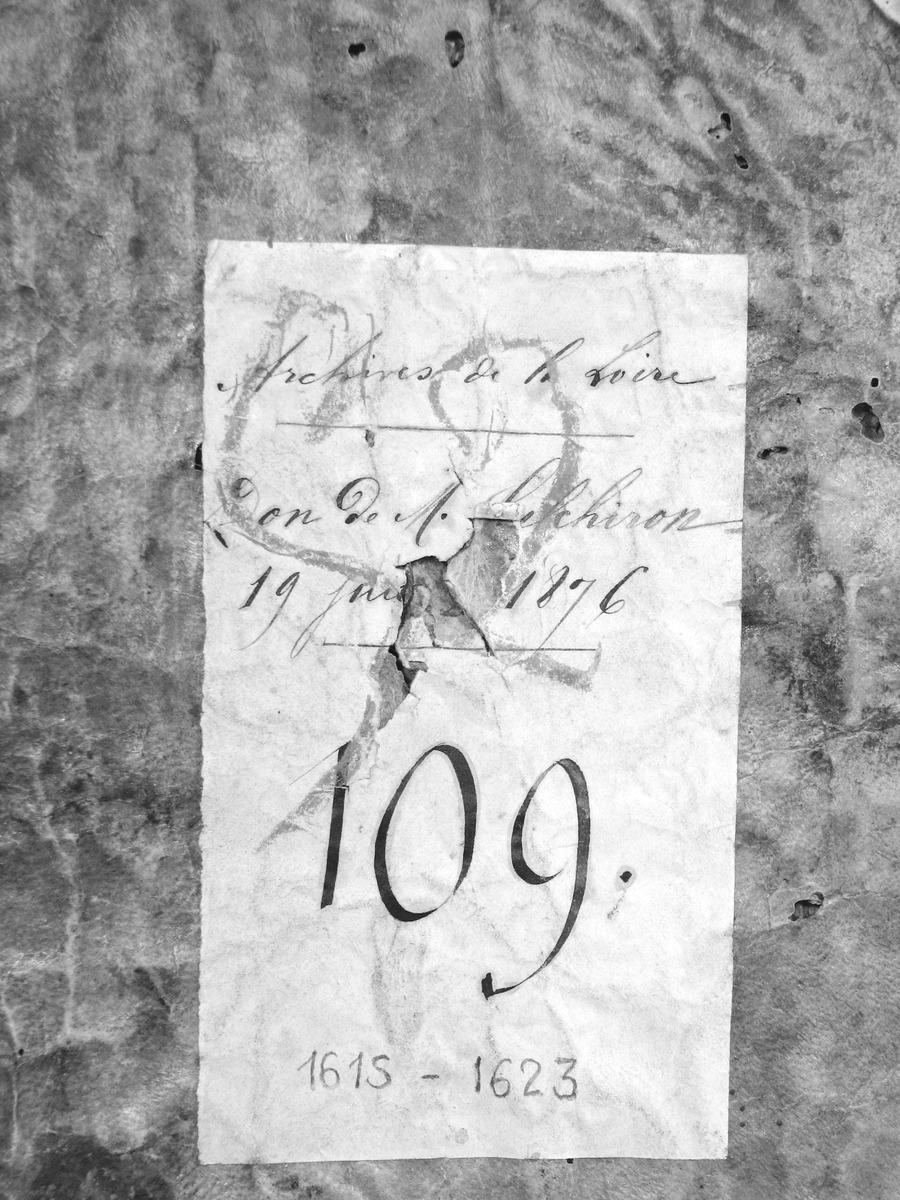 Archives de la Loire
Don de M.
19 juin 1876
109.
1615 - 1623